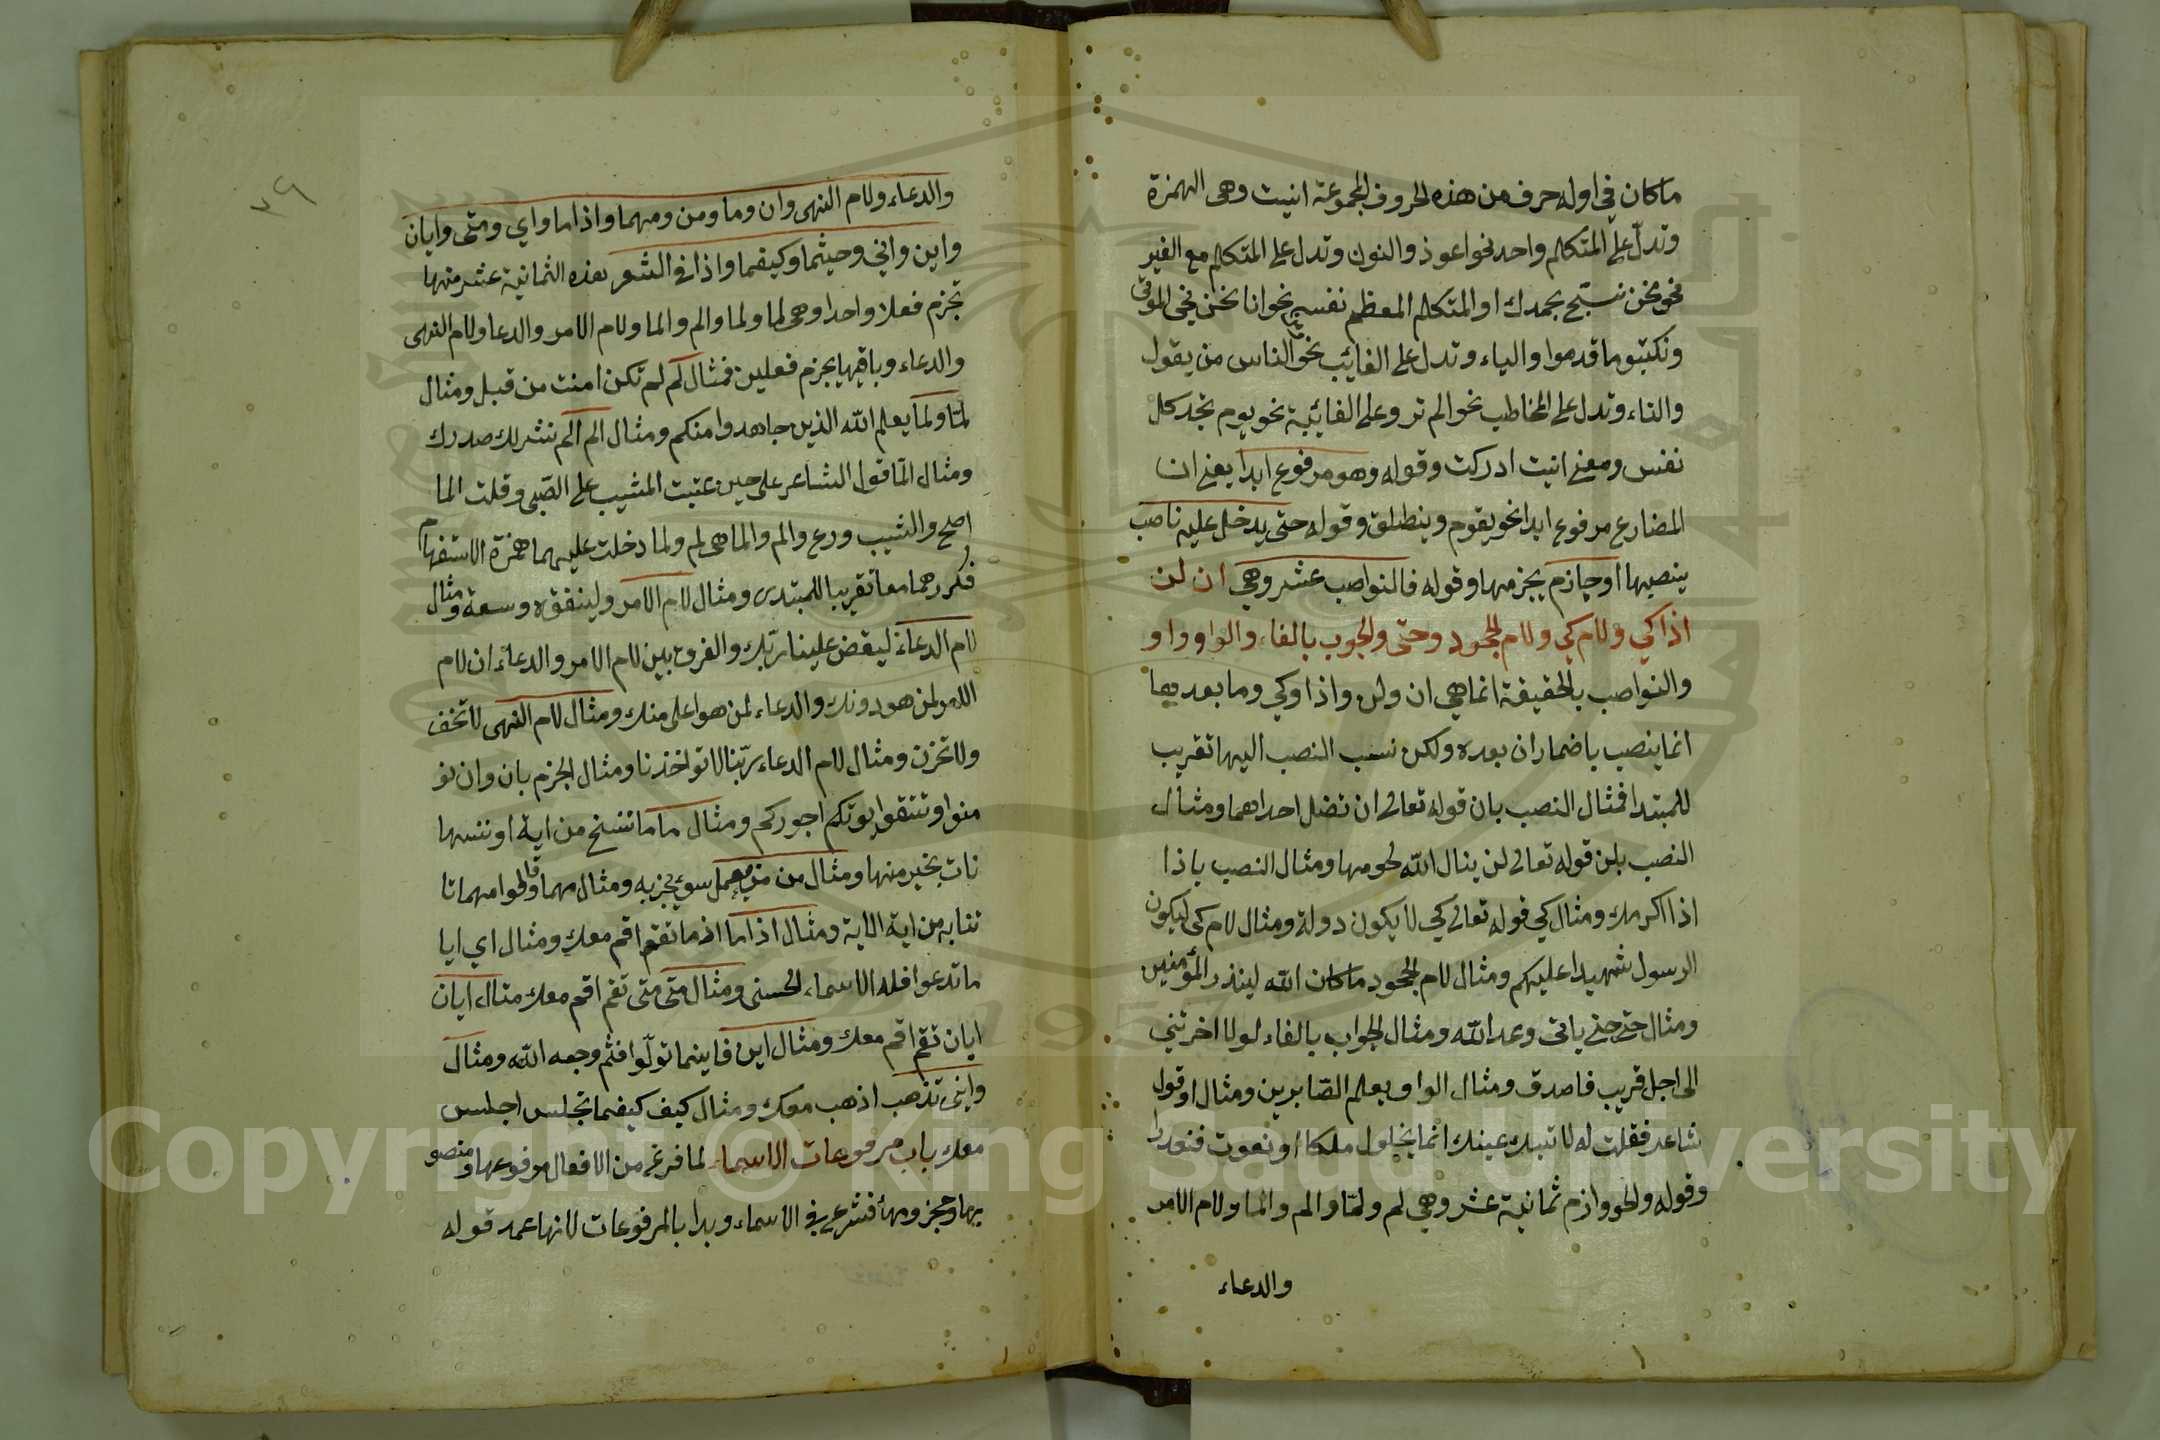 ماكان في اوله حرف من هذه الحروف المجموعة انيت وهى الهمزة
وتدلّ على المتكلم واحد نحو اعوذ والنون وتدل على المتكلم مع الغير
نحو نحن نسبّح بحمدك او المتكلم المعظم نفسه نحو انا نحن نحي الموتى
ونكتبو ما قدموا والياء وتدل على الغايب نحو الناس من يقول
والتاء وتدل على المخاطب نحو الم تر وعلى الغائبة نحو يوم تجد كل
نفس ومعنى انيت ادركت وقوله وهو مرفوع ابدا يعني ان
المضارع مرفوع ابدا نحو يقوم وينطلق وقوله حتى يدخل عليه ناصب
ينصبها او جازم يجزمها وقوله فالنواصب عشر وهي ان لن
اذا كي ولام كي ولام الجحود وحتى والجوب بالفاء والواو واو
والنواصب بالحقيقة انما هي ان ولن واذا وكي وما بعد
انما ينصب باضمار ان بعده ولكن نسب النصب اليها تقريب
للمبتدا فمثال النصب بان قوله تعالى ان تضل احداهما ومثال
النصب بلن قوله تعالى لن ينال الله لحومها ومثال النصب باذا
اذا اكرمك ومثال كي قوله تعالى كي لا يكون دولة ومثال لام كى ليكون
الرسول شهيدا عليكم ومثال لام الجحود ماكان الله ليذر المؤمنين
ومثال حتى حتى ياتى وعد الله ومثال الجواب بالفاء لولا اخرتنى
الى اجل قريب فاصدق ومثال الواو ويعلم الصّابرين ومثال او قول
شاعر فقلت له لا تبك عينك انما نحاول ملكا او نموت فنعذرا
وقوله والجوازم ثمانية عشر وهي لم ولمّا والم والما ولام الامر
والدعاء
٣٩
والدعاء ولام النهى وان وما ومن ومهما واذاما واي ومتى وايان
واين وانى وحيثما وكيفما واذا في الشعر بهذه الثمانية عشر منها
تجزم فعلا واحدا وهى لم ولما والم والما ولام الامر والدعا ولام النهى
والدعاء وباقيها يجزم فعلين فمثال لم لم تكن امنت من قبل ومثال
لمّا ولما يعلم الله الذين جاهدوا منكم ومثال الم الم نشرلك صدرك
ومثال المّا قول الشاعر على حين عتبت المشيب على الصّبى وقلت الما
اصلح والشيب وزع والم والما هى لم ولما دخلت عليهما همزة الاستفهام
فكررهما معا تقريبا للمبتدى ومثال لام الامر ولينفق ذو سعة ومثال
لام الدعاء ليقض علينا ربّك والفرق بين لام الامر والدعاء ان لام
الامر لمن هو دونك والدعاء لمن هو اعلى منك ومثال لام النهى لا تخف
ولا تحزن ومثال لام الدعاء ربّنا لا تواخذنا ومثال الجزم بان وان تو
منوا وتتقوا يوتكم اجوركم ومثال ما ما ننسخ من اية او ننسها
نات بخير منها ومثال من من يعمل سوء يجز به ومثال مهما وقالوا مهما تا
تنا به من اية الاية ومثال اذاما اذما تقم اقم معك ومثال اي ايا
ما تدعوا فله الاسماء الحسنى ومثال متى متى تقم اقم معك مثال ايان
ايان تقم اقم معك ومثال اين فاينما تولّوا فثم وجه الله ومثال
وانى تذهب اذهب معك ومثال كيف كيفما تجلس اجلس
معك باب مرفوعات الاسماء لما فرغ من الافعال مرفوعها ومنصو
بها ومجزومها فشرع في الاسماء وبدا بالمرفوعات لانها عمد قوله
Copyright © King Saud University
1957